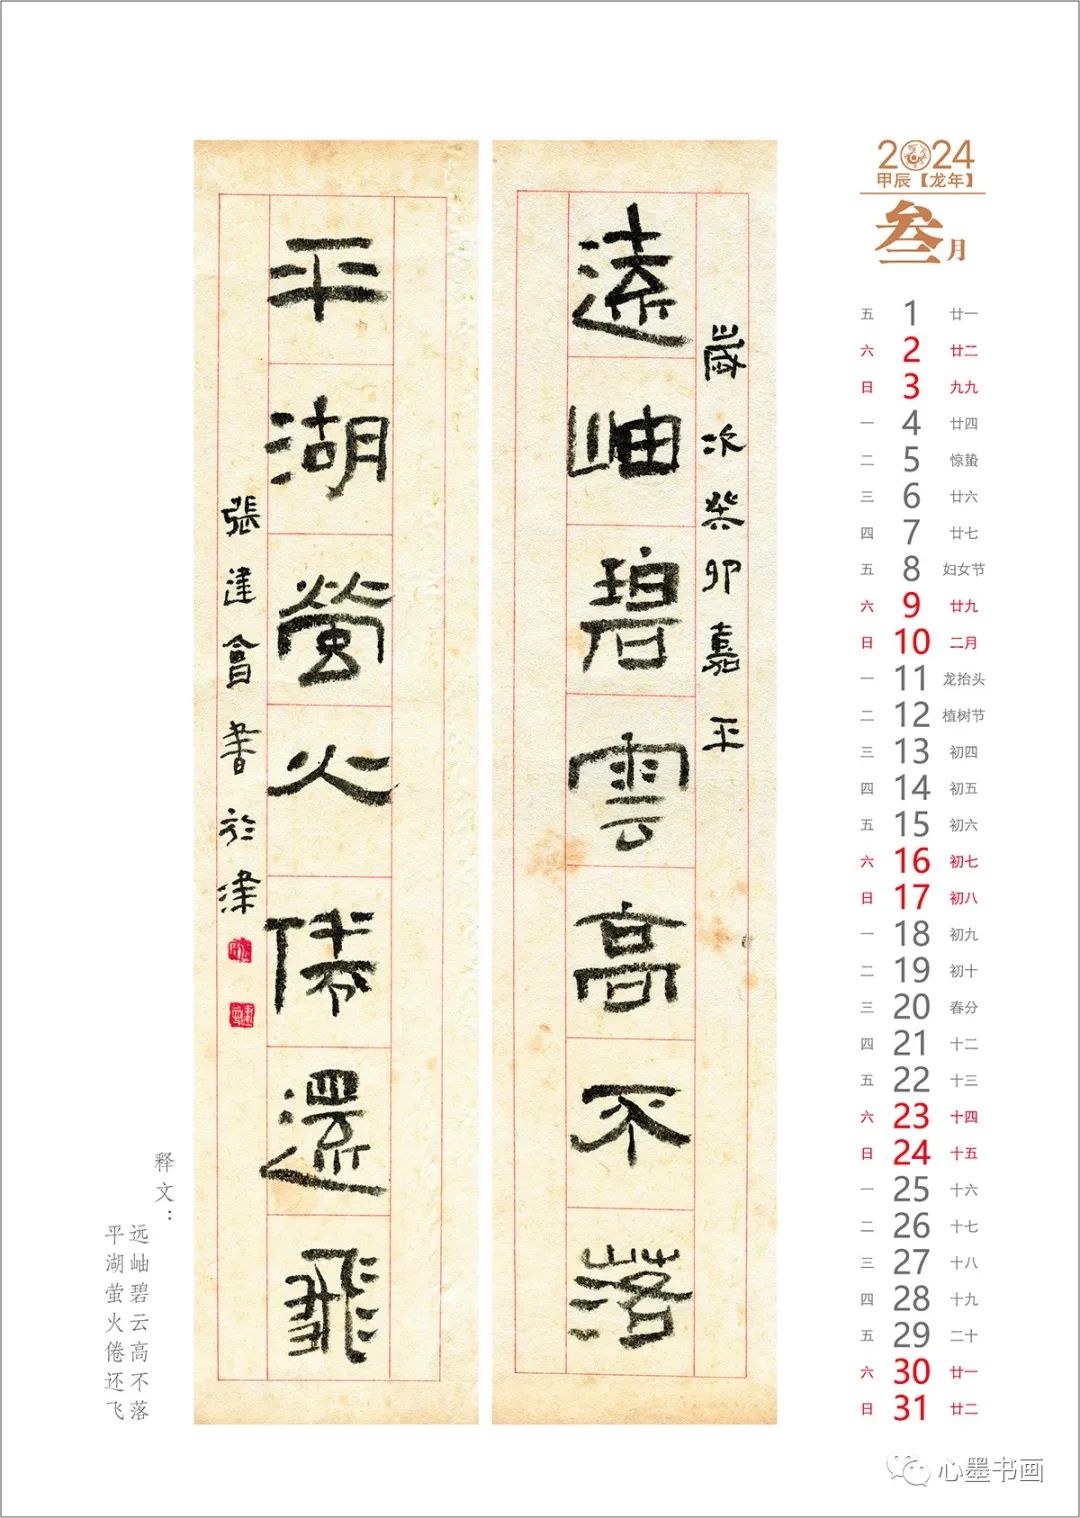 遠岫碧雲高不落
歲次癸卯嘉平
平湖螢火倦還飛
張建會書於津
释文：
远岫碧云高不落
平湖萤火倦还飞
2024
甲辰【龙年】
叁月
五 1 廿一
六 2 廿二
日 3 九九
一 4 廿四
二 5 惊蛰
三 6 廿六
四 7 廿七
五 8 妇女节
六 9 廿九
日 10 二月
一 11 龙抬头
二 12 植树节
三 13 初四
四 14 初五
五 15 初六
六 16 初七
日 17 初八
一 18 初九
二 19 初十
三 20 春分
四 21 十二
五 22 十三
六 23 十四
日 24 十五
一 25 十六
二 26 十七
三 27 十八
四 28 十九
五 29 二十
六 30 廿一
日 31 廿二
心墨书画